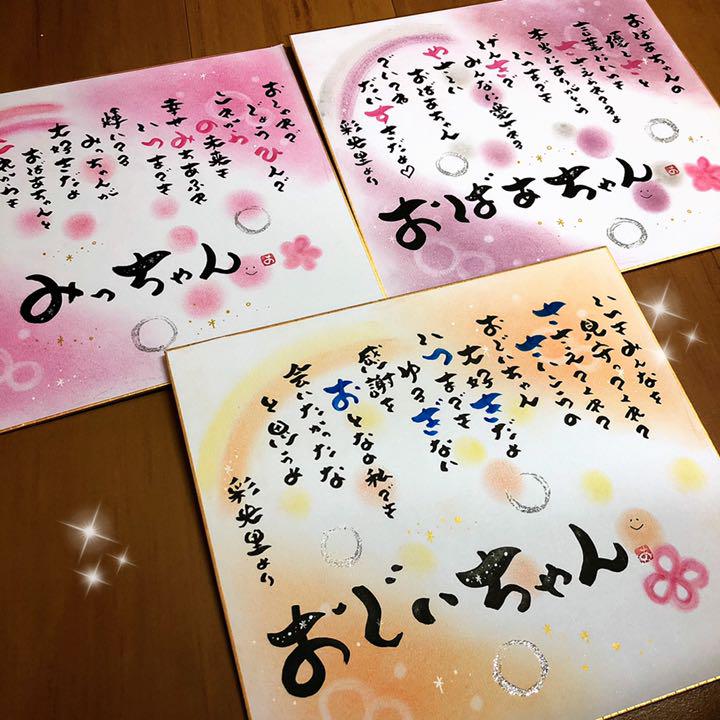 おしゃれで
じょうひんで
幸せみちあふれ
いつまでも
輝いてる
みっちゃんが
大好きだよ
おばあちゃんを
みっちゃん
おばあちゃんの
優しさと
言葉に
ささえられてるよ
本当にありがとう
いつまでも
げんきで
みんなに愛される
やさしい
おばあちゃん
でいてね
だいすきだよ♡
より
おばあちゃん
あ
いつもみんなを
見守ってくれて
ささえてくれて
さいこうの
おじいちゃん
大好きだよ
いつまでも
ゆるぎない
感謝を
おとなの私でも
会いたかったな
と思うよ
より
おじぃちゃん
あ